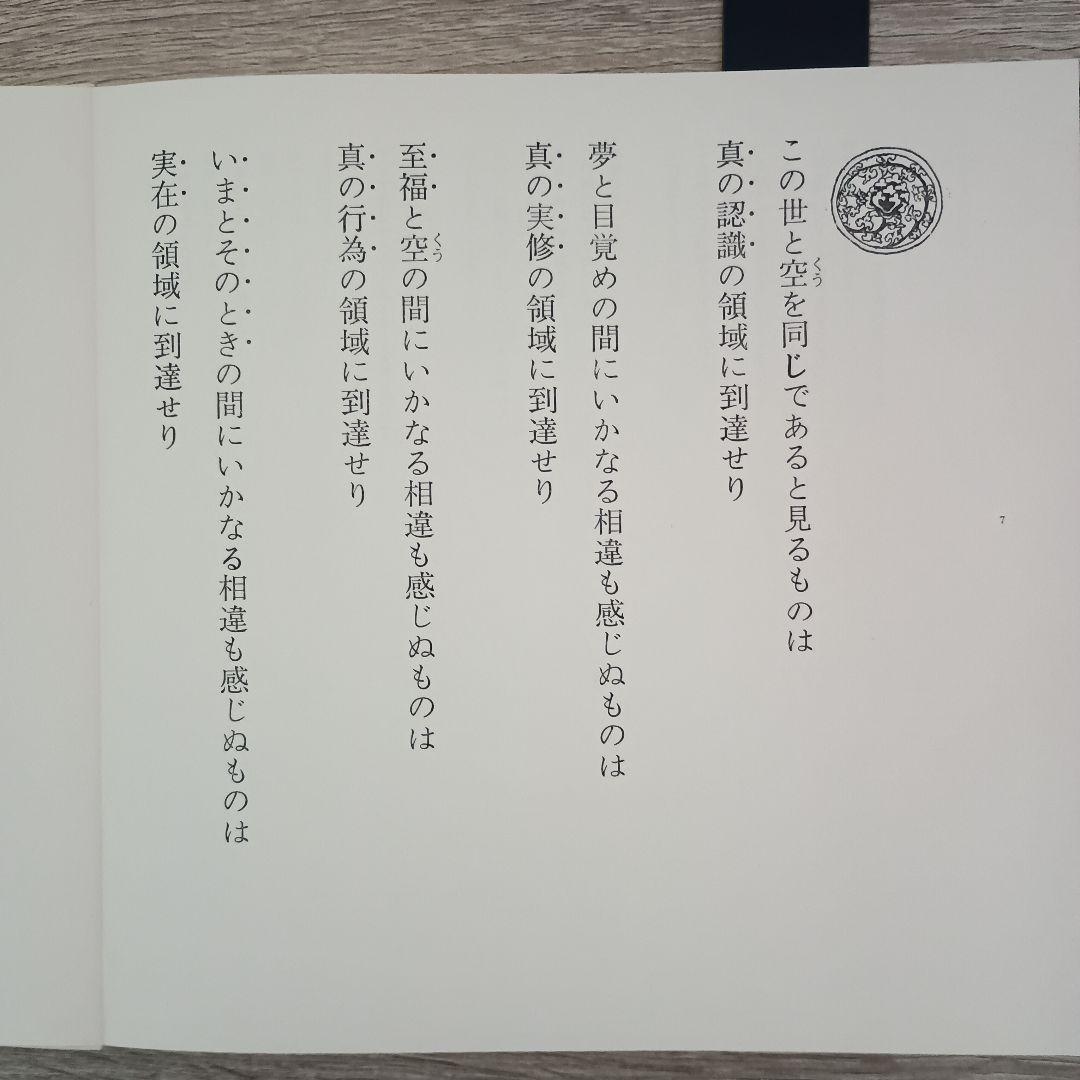 この世と空を同じであると見るものは
くう
真の認識の領域に到達せり
夢と目覚めの間にいかなる相違も感じぬものは
真の実修の領域に到達せり
至福と空の間にいかなる相違も感じぬものは
くう
真の行為の領域に到達せり
いまとそのときの間にいかなる相違も感じぬものは
実在の領域に到達せり
7